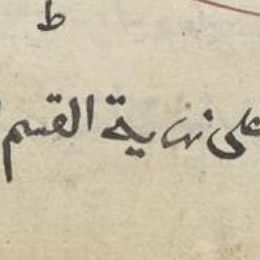 ط
على نهاية القسم